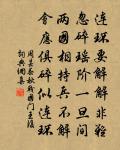 連環要解解非難
忽碎瑤階一旦間
兩國相持兵不解
會應俱碎似連環
周曇春秋戰國門王後
詞典網集